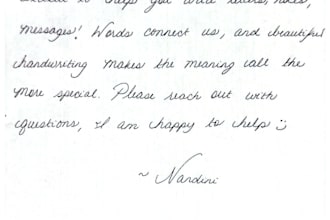 to help you write letters, notes,
messages! Words connect us, and beautiful
handwriting makes the meaning all the
more special. Please reach out with
questions, I am happy to help :)
~ Nandini